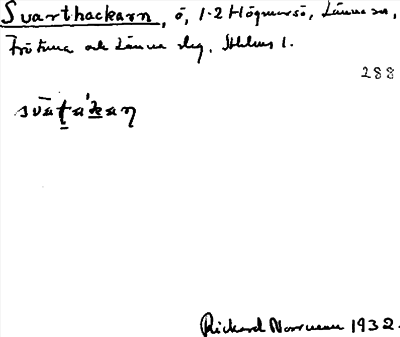 Svarthackarn, ö, 1.2 Högmarsö, Länna sn,
Frötuna och Länna slg, Sthlms l.
288
svāṭa'kaη
Rickard Norrman 1932.